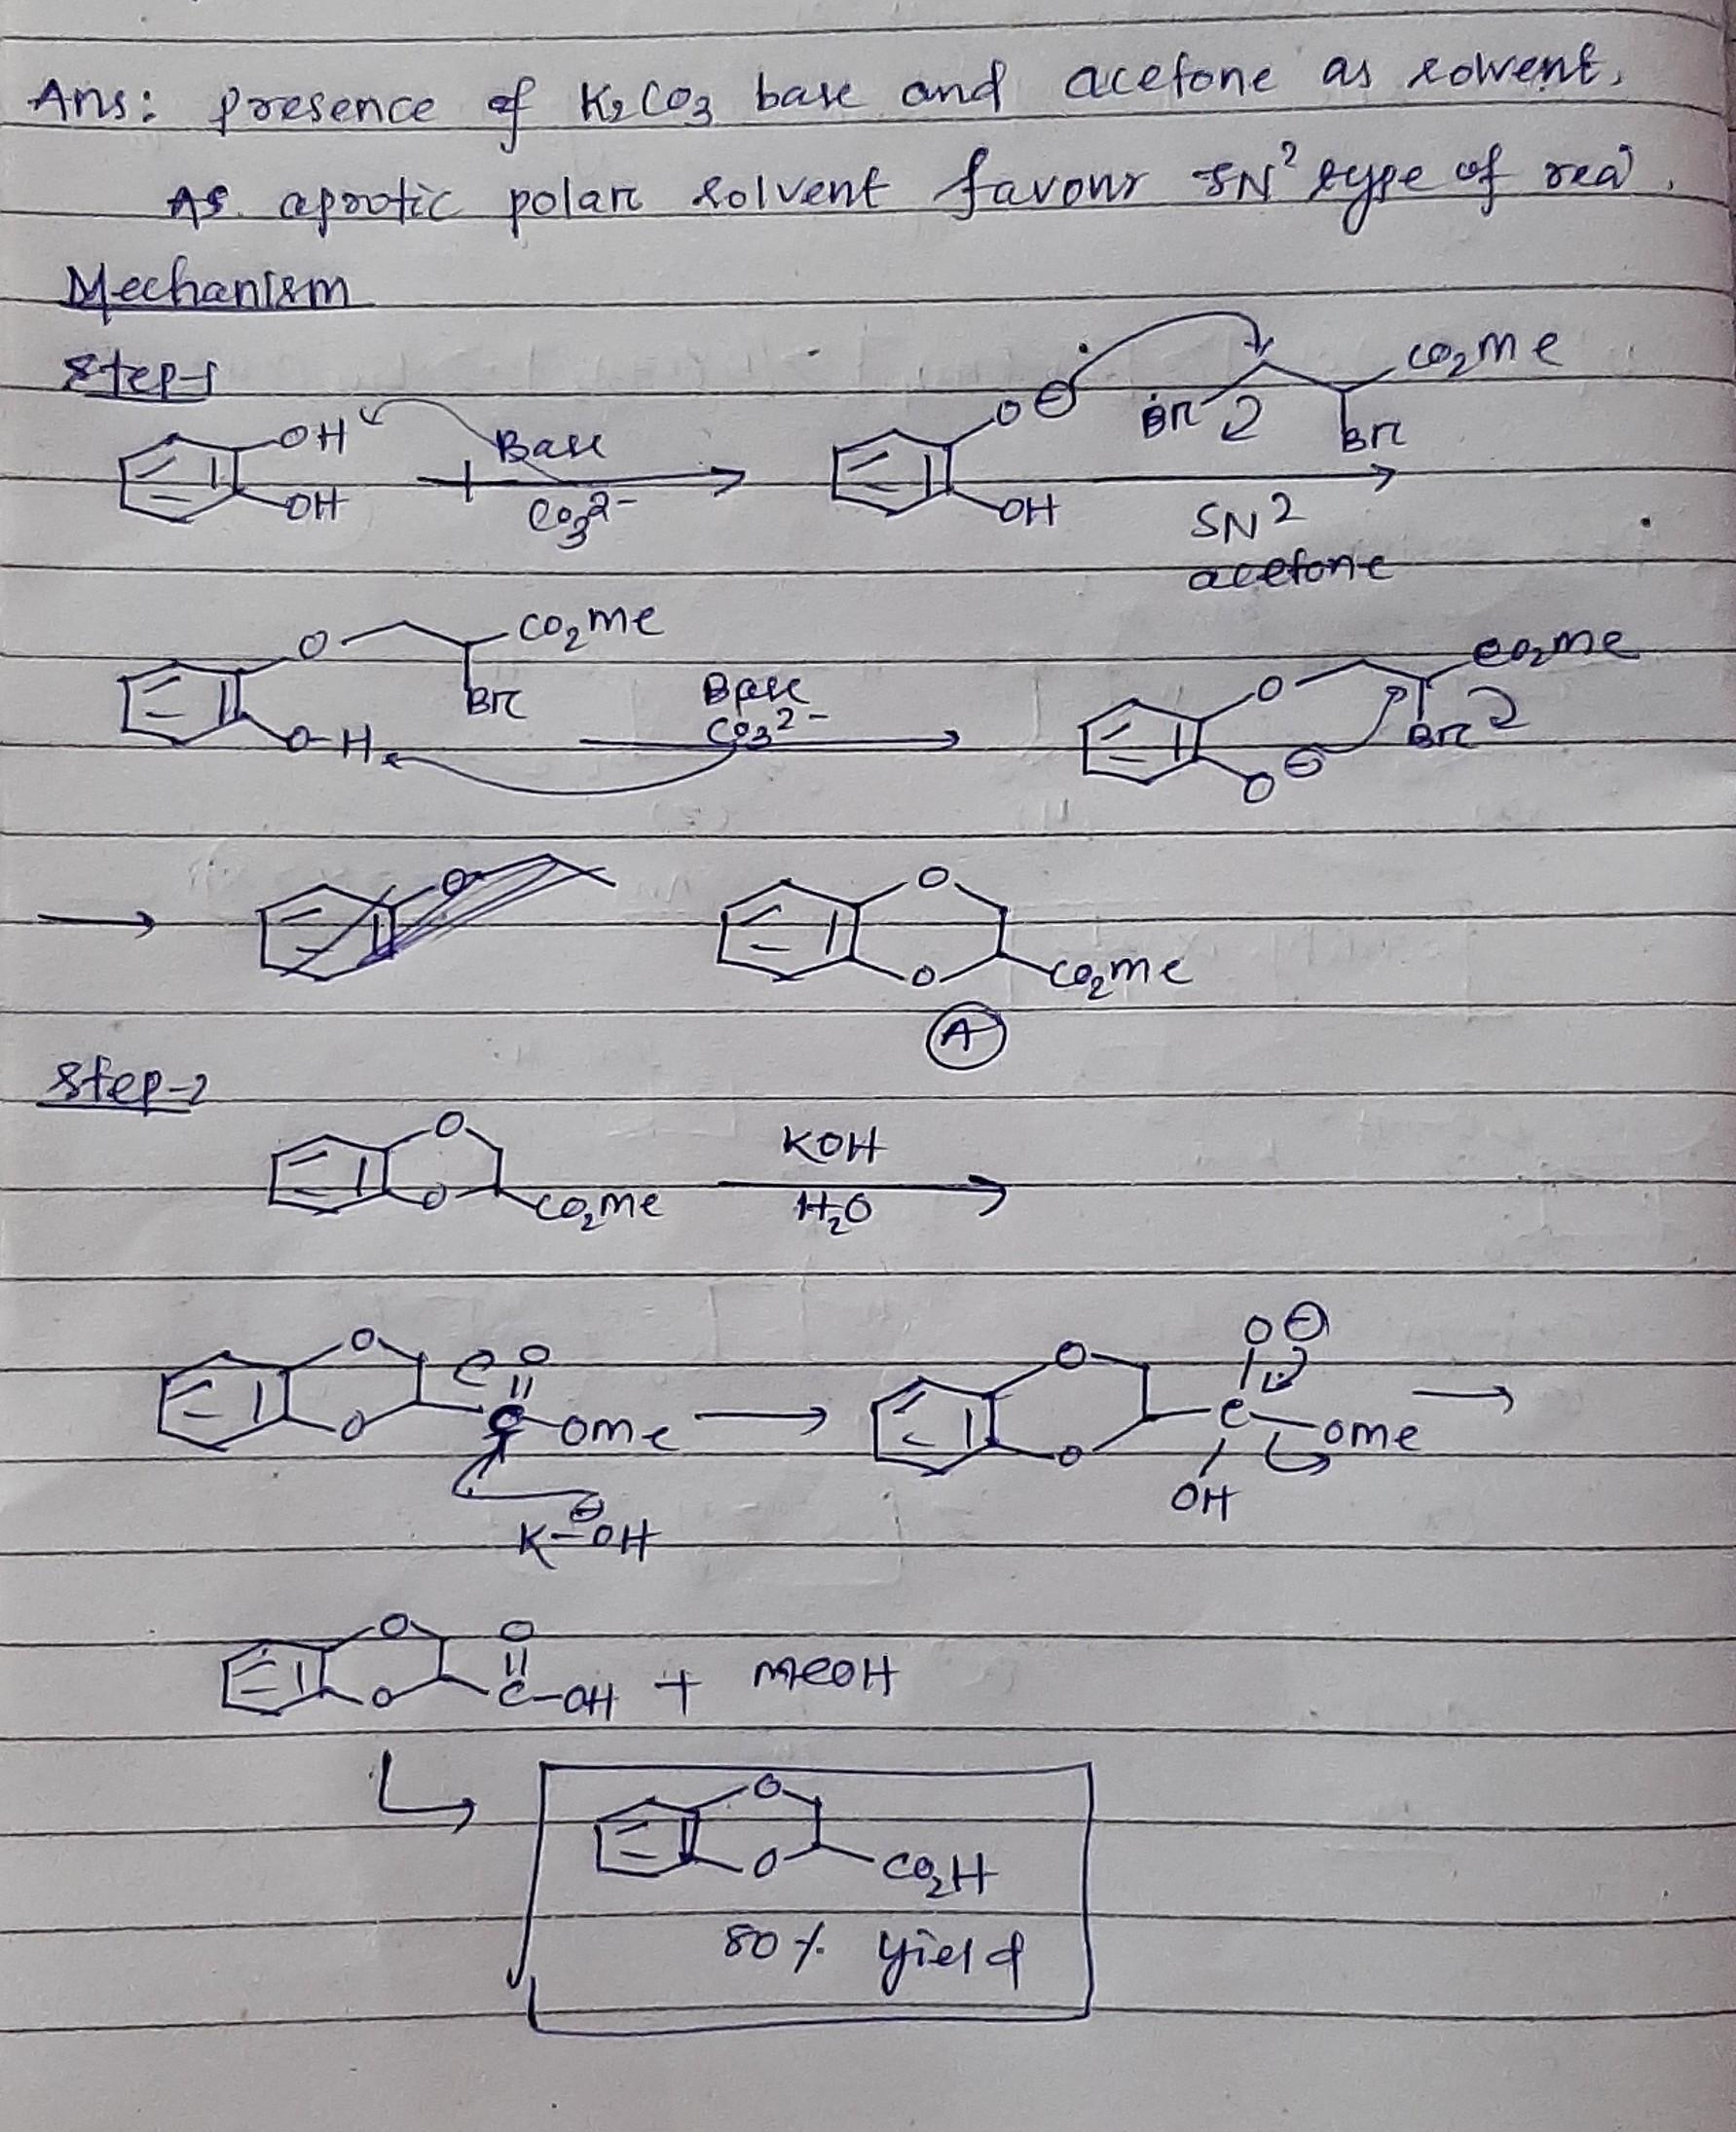 Ans: presence of K2CO3 base and acetone as solvent.
As aprotic polar solvent favour SN2 type of rea
Mechanism
Step-1
OH
OH
Base
CO3 2-
O⊖
OH
Br
CO2Me
Br
SN2
acetone
O
CO2Me
Br
O-H
Base
CO3 2-
O
CO2Me
Br
O⊖
O
O
O
CO2Me
A
Step-2
O
O
CO2Me
KOH
H2O
O
O
O
C
OMe
K-⊖OH
O
O
O⊖
C
OMe
OH
O
O
O
C-OH + MeOH
O
O
CO2H
80% yield